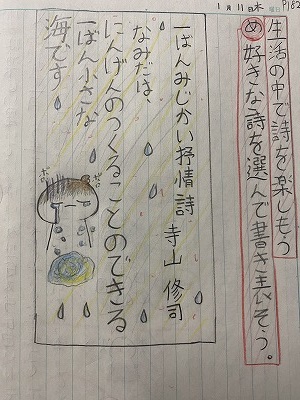 1月11日木曜日 P182
生活の中で詩を楽しもう
め 好きな詩を選んで書き表そう。
一ばんみじかい抒情詩 寺山修司
なみだは、
にんげんのつくることのできる
一ばん小さな
海です
ポロ
ポロ